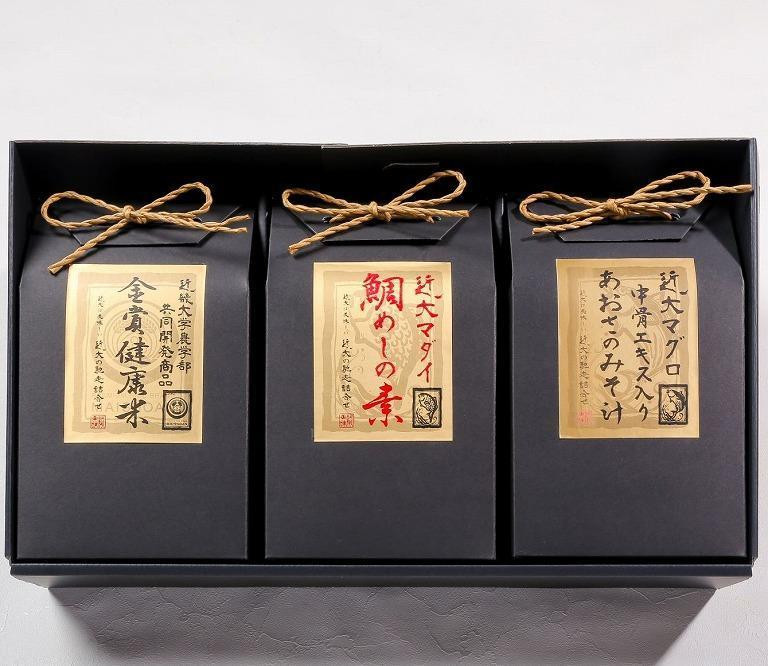 近畿大学農学部
共同開発商品
金賞健康米
近大の馳走詰合せ
近大マダイ
鯛めしの素
近大の馳走詰合せ
近大マグロ
中骨エキス入り
あおさのみそ汁
近大の馳走詰合せ